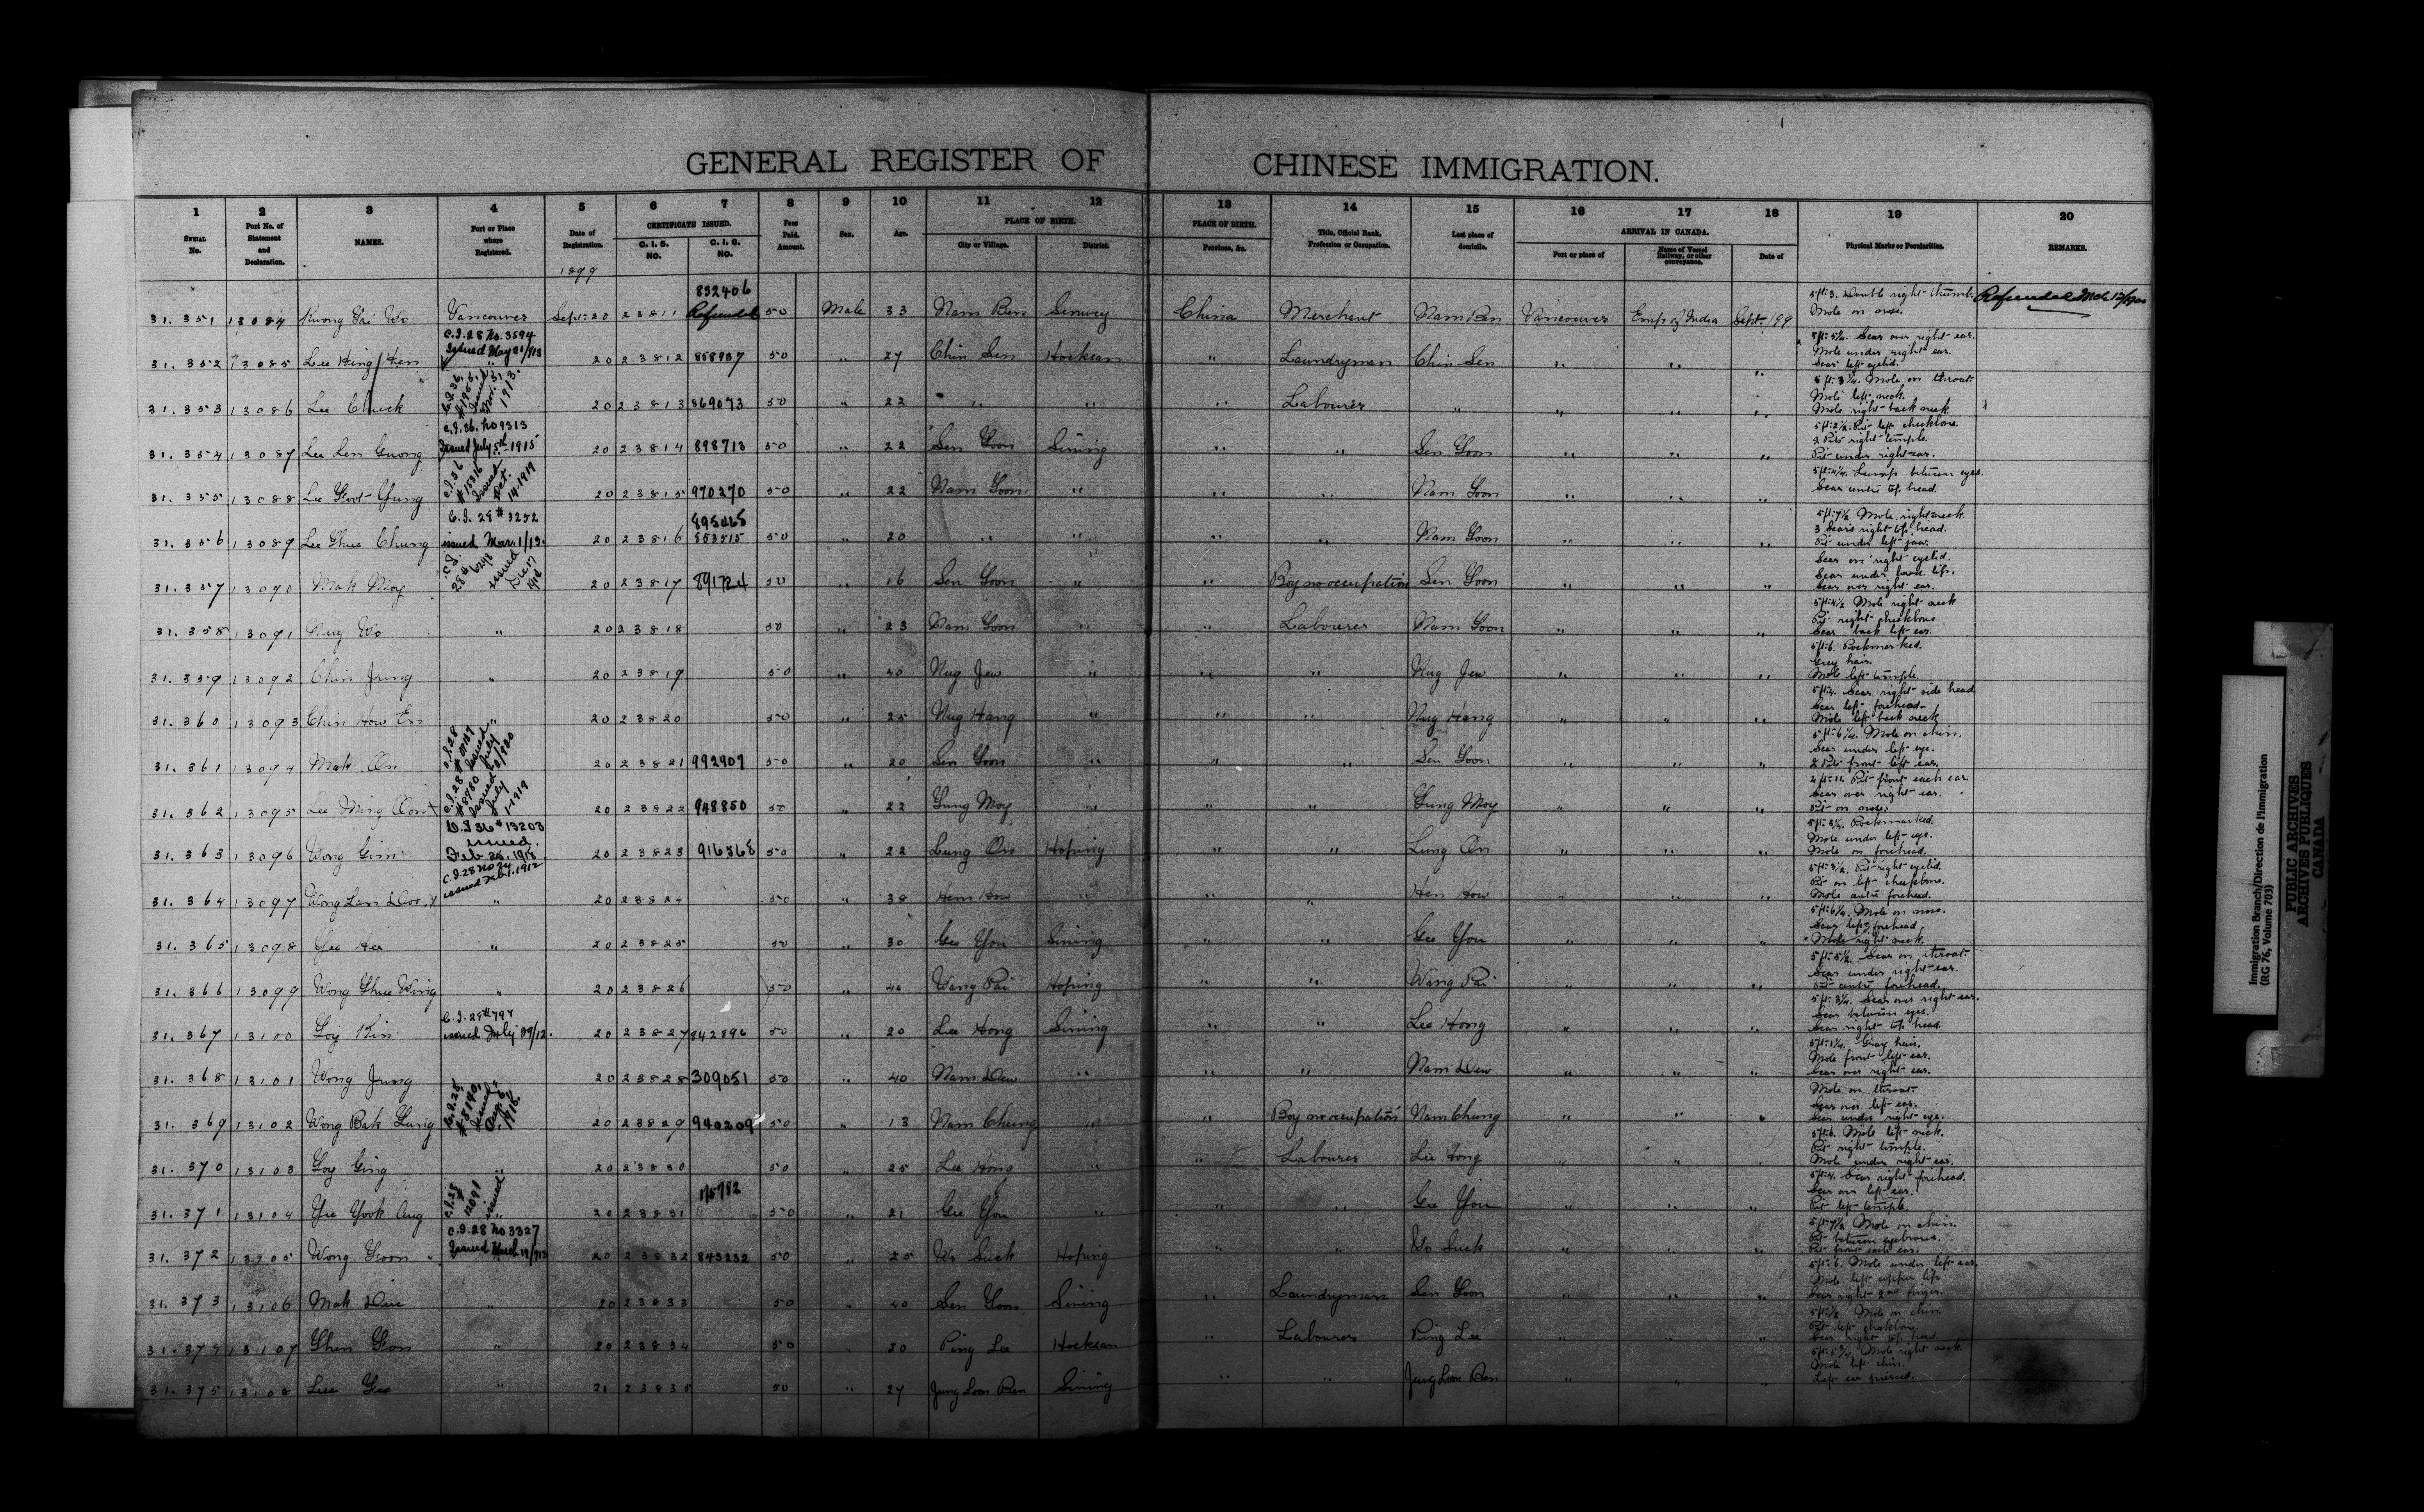 GENERAL REGISTER OF CHINESE IMMIGRATION.
1 2 3 4 5 6 7 8 9 10 11 12 13 14 15 16 17 18 19 20
SERIAL No. Port No. of Statement and Declaration. NAMES. Port or Place where Registered. Date of Registration. CERTIFICATE ISSUED. C. I. 5. NO. C. I. 6. NO. Fees Paid. Amount. Sex. Age. PLACE OF BIRTH. City or Village. District. PLACE OF BIRTH. Province, &c. Title, Official Rank, Profession or Occupation. Last place of domicile. ARRIVAL IN CANADA. Port or place of Name of Vessel Railway, or other conveyance. Date of Physical Marks or Peculiarities. REMARKS.
1899
832406
31. 351 13084 Kwong Wo Vancouver Sept. 20 23811 Refunded 50 Male 33 Nam Ben China Merchant Nam Ben Vancouver Emp of India Sept /99 5 ft. 3. Double right thumb. Mole on nose. Refunded
C.I. 28 No. 3594 Issued May 21/13
31. 352 13085 Lee Hing 20 23812 858937 50 " 27 Chin Sen Hocksan " Laundryman Chin Sen " " " Scar over right ear. Mole under right ear. Scar left eyelid.
31. 353 13086 Lee Chuck 1913. 20 23813 869073 50 " 22 " " " Labourer " " " " 5 ft. 3¼. Mole on throat. Mole left neck. Mole right back neck.
C.I. 36. No 9313 Issued July 5th 1915
31. 354 13087 Lee Len Guong 20 23814 898713 50 " 22 Sen Goon Sining " " Sen Goon " " " 5 ft. 2½. Pit left cheekbone. 2 Pits right temple. Pit under right ear.
C.I. 36 #15316 Issued Oct. 14 1919
31. 355 13088 Lee Yung 20 23815 970270 50 " 22 Nam Goon " " " Nam Goon " " " Lump between eyes. Scar centre top head.
C.I. 28 # 3252 issued 1/13. 895465
31. 356 13089 Lee Chung 20 23816 853515 50 " 20 " " " " Nam Goon " " " 5 ft. 7½ Mole right neck. 3 Scars right top head. Pit under left jaw.
31. 357 13090 Mak Moy 20 23817 891724 50 " 16 Sen Goon " " Boy no occupation Sen Goon " " " Scar on right eyelid. Scar under lip. Scar over right ear.
31. 358 13091 Nug Wo " 20 23818 50 " 23 Nam Goon " " Labourer Nam Goon " " " 5 ft. 4½ Mole right neck Pit right cheekbone Scar back left ear.
31. 359 13092 Chin Jung " 20 23819 50 " 40 Nug Jew " " " Nug Jew " " " 5 ft. 6. Pockmarked. Grey hair. Mole left temple.
31. 360 13093 Chin How En " 20 23820 50 " 25 Nug Hang " " " Nug Hang " " " Scar right side head. Scar left forehead. Mole left back neck
31. 361 13094 Mak On 20 23821 992907 50 " 20 Sen Goon " " " Sen Goon " " " 5 ft. 6¼. Mole on chin. Scar under left eye. 2 Pits front left ear.
C.I. 28 #8780 Issued July 1-1919
31. 362 13095 Lee Ming 20 23822 948850 50 " 22 Gung Moy " " " Gung Moy " " " Pit front each ear. Scar over right ear. Pit on nose.
C.I 36 # 13203 issued. Feb 25. 1918
31. 363 13096 Wong Gim 20 23823 916368 50 " 22 Lung On Hoping " " Lung On " " " Pockmarked. Mole under left eye. Mole on forehead.
C.I. 28 No 74 issued Feb. 1. 1912
31. 364 13097 Wong Lan " 20 23824 50 " 38 Hen How " " " Hen How " " " Pit right eyelid. Pit on left cheekbone. Mole centre forehead.
31. 365 13098 Yee " 20 23825 50 " 30 Gee You Sining " " Gee You " " " 5 ft. 6¼. Mole on nose. Scar left forehead. Mole right neck.
31. 366 13099 Wong Wing " 20 23826 50 " 40 Wang Pai Hoping " " Wang Pai " " " 5 ft. 5½. Scar on throat. Scar under right ear. Pit centre forehead.
31. 367 13100 Goy Kin issued 20 23827 842896 50 " 20 Lee Hong Sining " " Lee Hong " " " 5 ft. 3¼. Scar over right ear. Scar between eyes. Scar right top head.
31. 368 13101 Wong Jung 20 23828 309051 50 " 40 Nam Dew " " " Nam Dew " " " Gray hair. Mole front left ear. Scar over right ear.
31. 369 13102 Wong Bak Lung 20 23829 940209 50 " 13 Nam Chung " " Boy no occupation Nam Chung " " " Mole on throat. Scar over left ear. Scar under right eye.
31. 370 13103 Goy Ging " 20 23830 50 " 25 Lee Hong " " Labourer Lee Hong " " " 5 ft. 6. Mole left neck. Pit right temple. Mole under right ear.
175782
31. 371 13104 Yee Yook Aug 20 23831 50 " 21 Gee You " " " Gee You " " " Scar right forehead. Scar over left ear. Pit left temple.
C.I. 28 No 3327 Issued March
31. 372 13105 Wong Goon 20 23832 843232 50 " 25 Wo Suck Hoping " " Wo Suck " " " 5 ft. 7½ Mole on chin. Pit between eyebrows. Pit front each ear.
31. 373 13106 Mak Due " 20 23833 50 " 40 Sen Goon Sining " Laundryman Sen Goon " " " 5 ft. 6. Mole under left ear. Mole left upper lip. Scar right 2nd finger.
31. 374 13107 " 20 23834 50 " 20 Ping Lee Hocksan " Labourer Ping Lee " " " Mole on chin. Pit left cheekbone. Scar right top head.
31. 375 13108 Lee " 21 23835 50 " 27 Jung Loon Ben Sining " " Jung Loon Ben " " " Mole right neck. Mole left chin. Left ear pierced.
Immigration Branch/Direction de l'Immigration
(RG 76, Volume 703)
PUBLIC ARCHIVES
ARCHIVES PUBLIQUES
CANADA